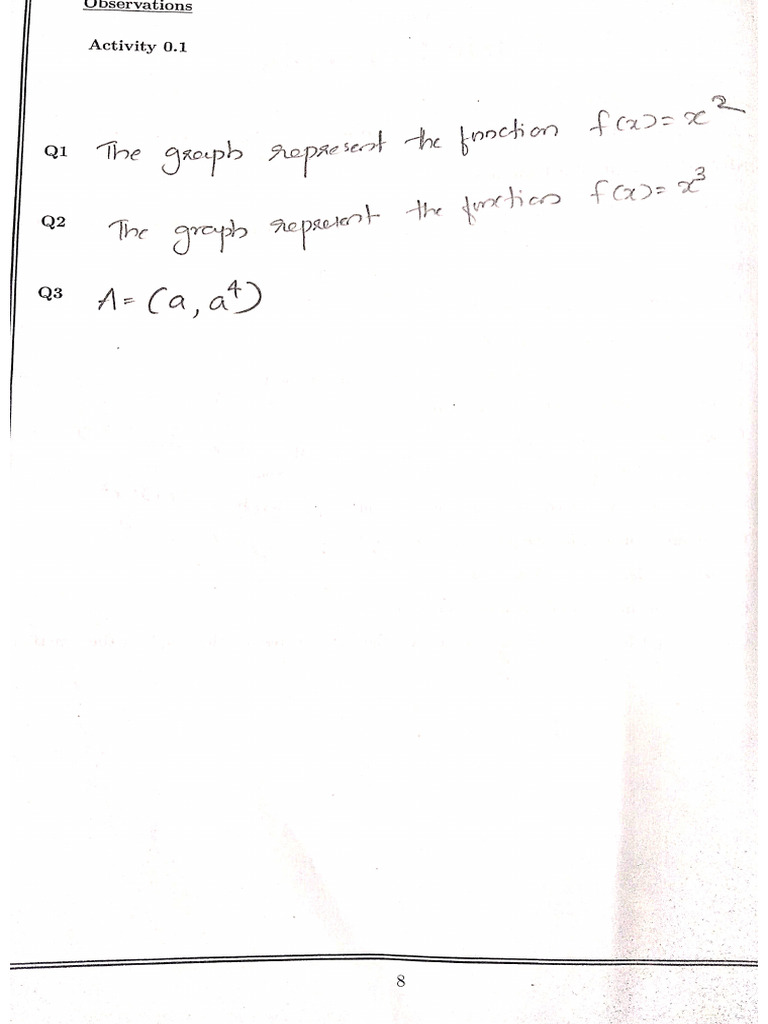 Observations
Activity 0.1
Q1 The graph represent the function f(x)= x²
Q2 The graph represent the function f(x)= x³
Q3 A= (a, a⁴)
8